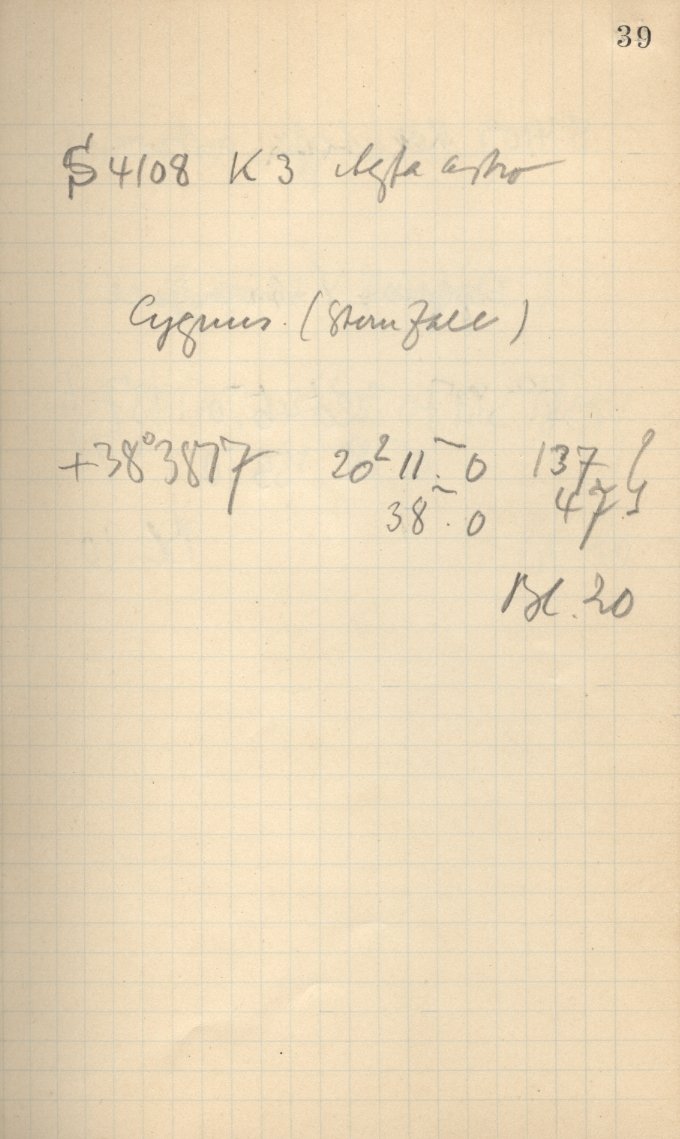 39
S 4108 K 3 Agfa astro
Cygnus. (Sternfall)
+38° 3877 20 11.0 137
38.0 47
Bl. 20